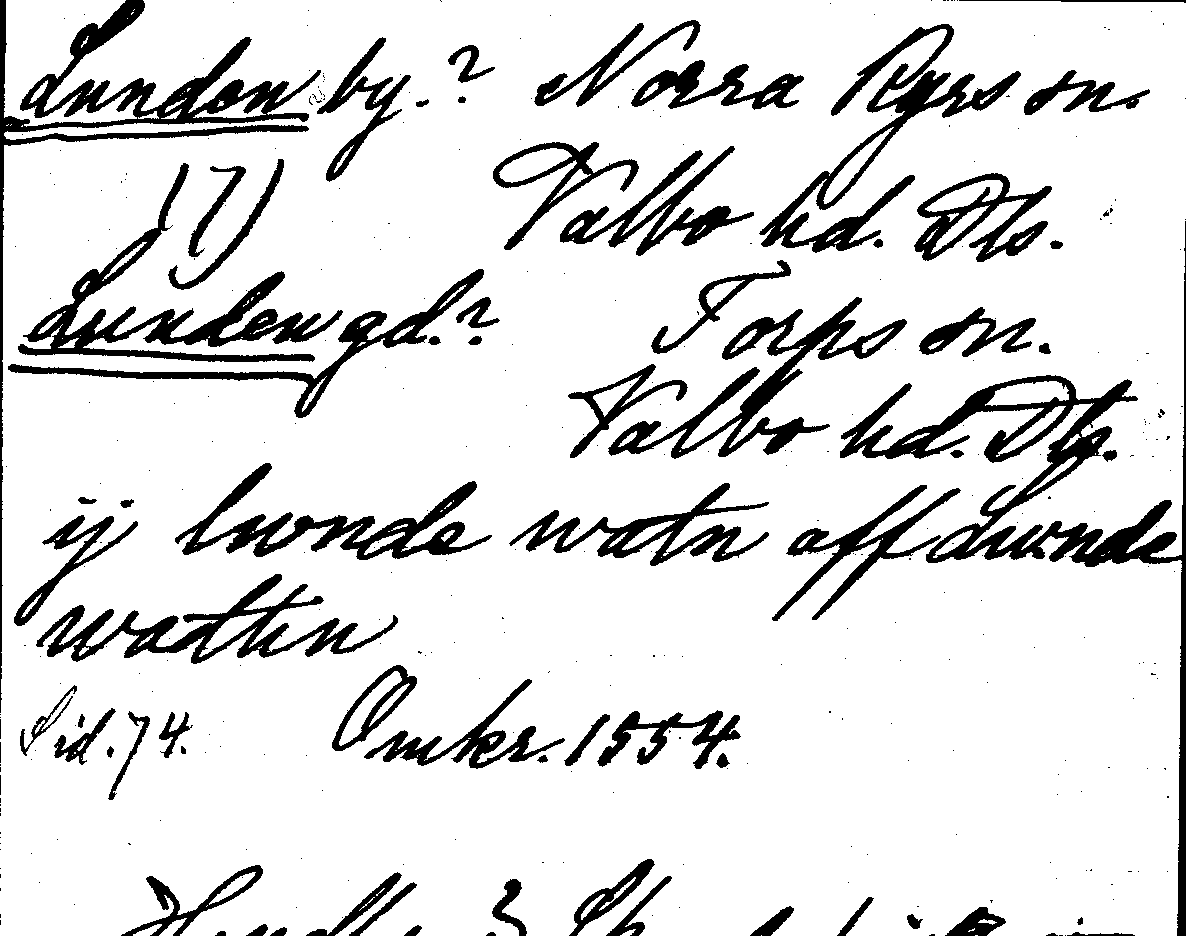 Lunden by.? Norra Ryrs sn.
(7) Valbo hd. Dls.
Lunden gd.? Torps sn.
Valbo hd. Dls.
ij lwnde watn aff Lwnde
wadtin
Sid. 74. Omkr. 1554.